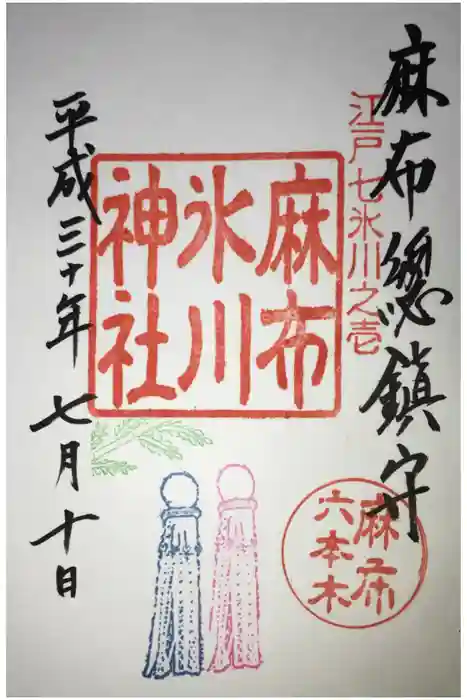 麻布總鎮守
江戸七氷川之壱
麻布
氷川
神社
平成三十年七月十日
麻布
六本木